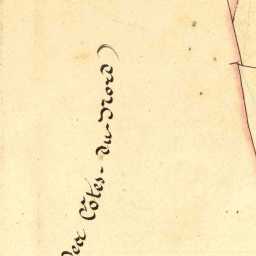 des Côtes-du-Nord)